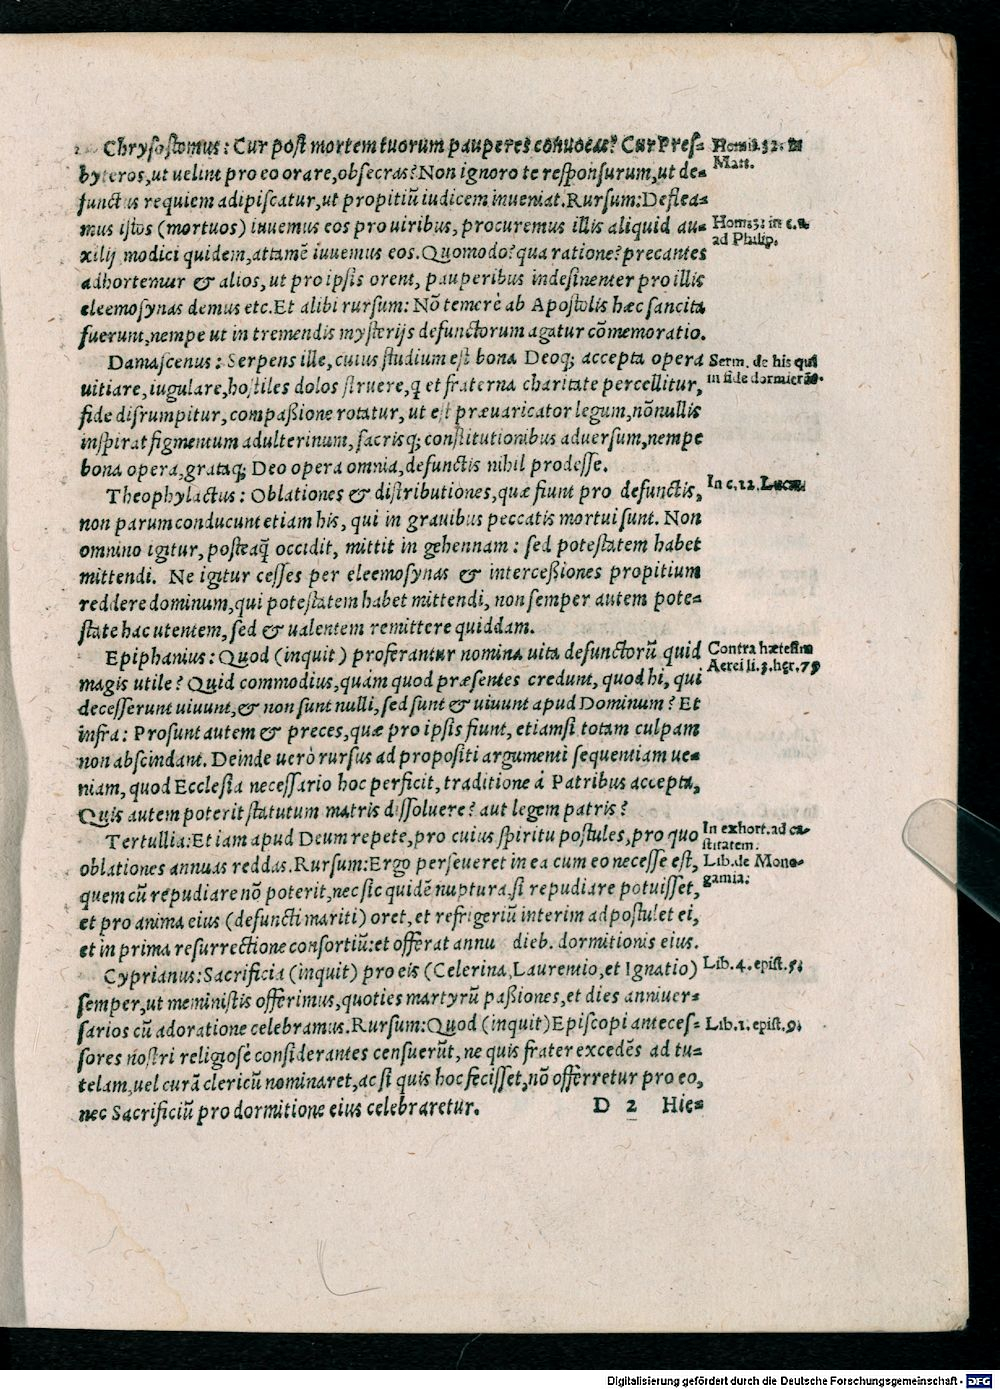 Chrysostomus: Cur post mortem tuorum pauperes conuocas? Cur Pres=
byteros, ut uelint pro eo orare, obsecras? Non ignoro te responsurum, ut de=
functus requiem adipiscatur, ut propitiū iudicem inueniat. Rursum: Deflea=
mus istos (mortuos) iuuemus eos pro uiribus, procuremus illis aliquid au=
xilij modici quidem, attamē iuuemus eos. Quomodo? qua ratione? precantes
adhortemur & alios, ut pro ipsis orent, pauperibus indesinenter pro illis
eleemosynas demus etc. Et alibi rursum: Nō temerè ab Apostolis hæc sancita
fuerunt, nempe ut in tremendis mysterijs defunctorum agatur cōmemoratio.
Homil. 32. in
Matt.
Hom. 3: in c. 1.
ad Philip.
Damascenus: Serpens ille, cuius studium est bona Deoq; accepta opera
uitiare, iugulare, hostiles dolos struere, q et fraterna charitate percellitur,
fide disrumpitur, compaßione rotatur, ut est præuaricator legum, nōnullis
inspirat figmentum adulterinum, sacrisq; constitutionibus aduersum, nempe
bona opera, grataq; Deo opera omnia, defunctis nihil prodesse.
Serm. de his qui
in fide dormierūt.
Theophylactus: Oblationes & distributiones, quæ fiunt pro defunctis,
non parum conducunt etiam his, qui in grauibus peccatis mortui sunt. Non
omnino igitur, posteaq̄ occidit, mittit in gehennam: sed potestatem habet
mittendi. Ne igitur cesses per eleemosynas & interceßiones propitium
reddere dominum, qui potestatem habet mittendi, non semper autem pote=
state hac utentem, sed & ualentem remittere quiddam.
In c. 12. Lucæ.
Epiphanius: Quod (inquit) proferantur nomina uita defunctorū quid
magis utile? Quid commodius, quàm quod præsentes credunt, quod hi, qui
decesserunt uiuunt, & non sunt nulli, sed sunt & uiuunt apud Dominum? Et
infra: Prosunt autem & preces, quæ pro ipsis fiunt, etiamsi totam culpam
non abscindant. Deinde uerò rursus ad propositi argumenti sequentiam ue=
niam, quod Ecclesia necessario hoc perficit, traditione à Patribus accepta,
Quis autem poterit statutum matris dissoluere? aut legem patris?
Contra hæresim
Aerei li. 3. hęr. 75
Tertullia: Etiam apud Deum repete, pro cuius spiritu postules, pro quo
oblationes annuas reddas. Rursum: Ergo perseueret in ea cum eo necesse est,
quem cū repudiare nō poterit, nec sic quidē nuptura, si repudiare potuisset,
et pro anima eius (defuncti mariti) oret, et refrigeriū interim adpostulet ei,
et in prima resurrectione consortiū: et offerat annu dieb. dormitionis eius.
In exhort. ad ca=
stitatem:
Lib. de Mono=
gamia:
Cyprianus: Sacrificia (inquit) pro eis (Celerina, Laurentio, et Ignatio)
semper, ut meministis offerimus, quoties martyrū paßiones, et dies anniuer=
sarios cū adoratione celebramus. Rursum: Quod (inquit) Episcopi anteces=
sores nostri religiosè considerantes censuerūt, ne quis frater excedēs ad tu=
telam, uel curā clericū nominaret, ac si quis hoc fecisset, nō offerretur pro eo,
nec Sacrificiū pro dormitione eius celebraretur.
Lib. 4. epist. 5.
Lib. 1. epist. 9.
D 2 Hie=
Digitalisierung gefördert durch die Deutsche Forschungsgemeinschaft - DFG